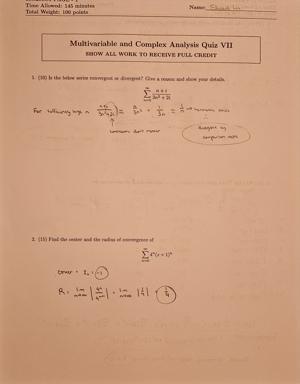 Time Allowed: 145 minutes
Total Weight: 100 points
Name:
Multivariable and Complex Analysis Quiz VII
SHOW ALL WORK TO RECEIVE FULL CREDIT
1. (10) Is the below series convergent or divergent? Give a reason and show your details.
For sufficiently large n
constants don't matter
divergent by
comparison test
2. (15) Find the center and the radius of convergence of
∑ 4ⁿ(z+1)ⁿ
center = z₀ = -1
R = lim n→∞ |4ⁿ/4ⁿ⁺¹| = lim n→∞ |1/4| = 1/4